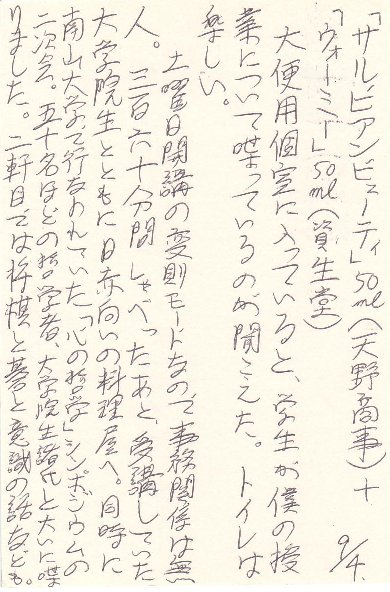 9/4.
「サルビアンビューティ」50ml(天野商事)+
「ウォーミー」50ml(資生堂)
大便用個室に入っていると、学生が僕の授
業について喋っているのが聞こえた。トイレは
楽しい。
土曜日開講の変則モードなので事務関係は無
人。三百六十分間しゃべったあと、受講していた
大学院生とともに日赤向いの料理屋へ。同時に
南山大学で行なわれていた「心の哲学」シンポジウムの
二次会。五十名ほどの哲学者、大学院生諸氏と大いに喋
りました。二軒目では将棋と碁と意識の話なども。